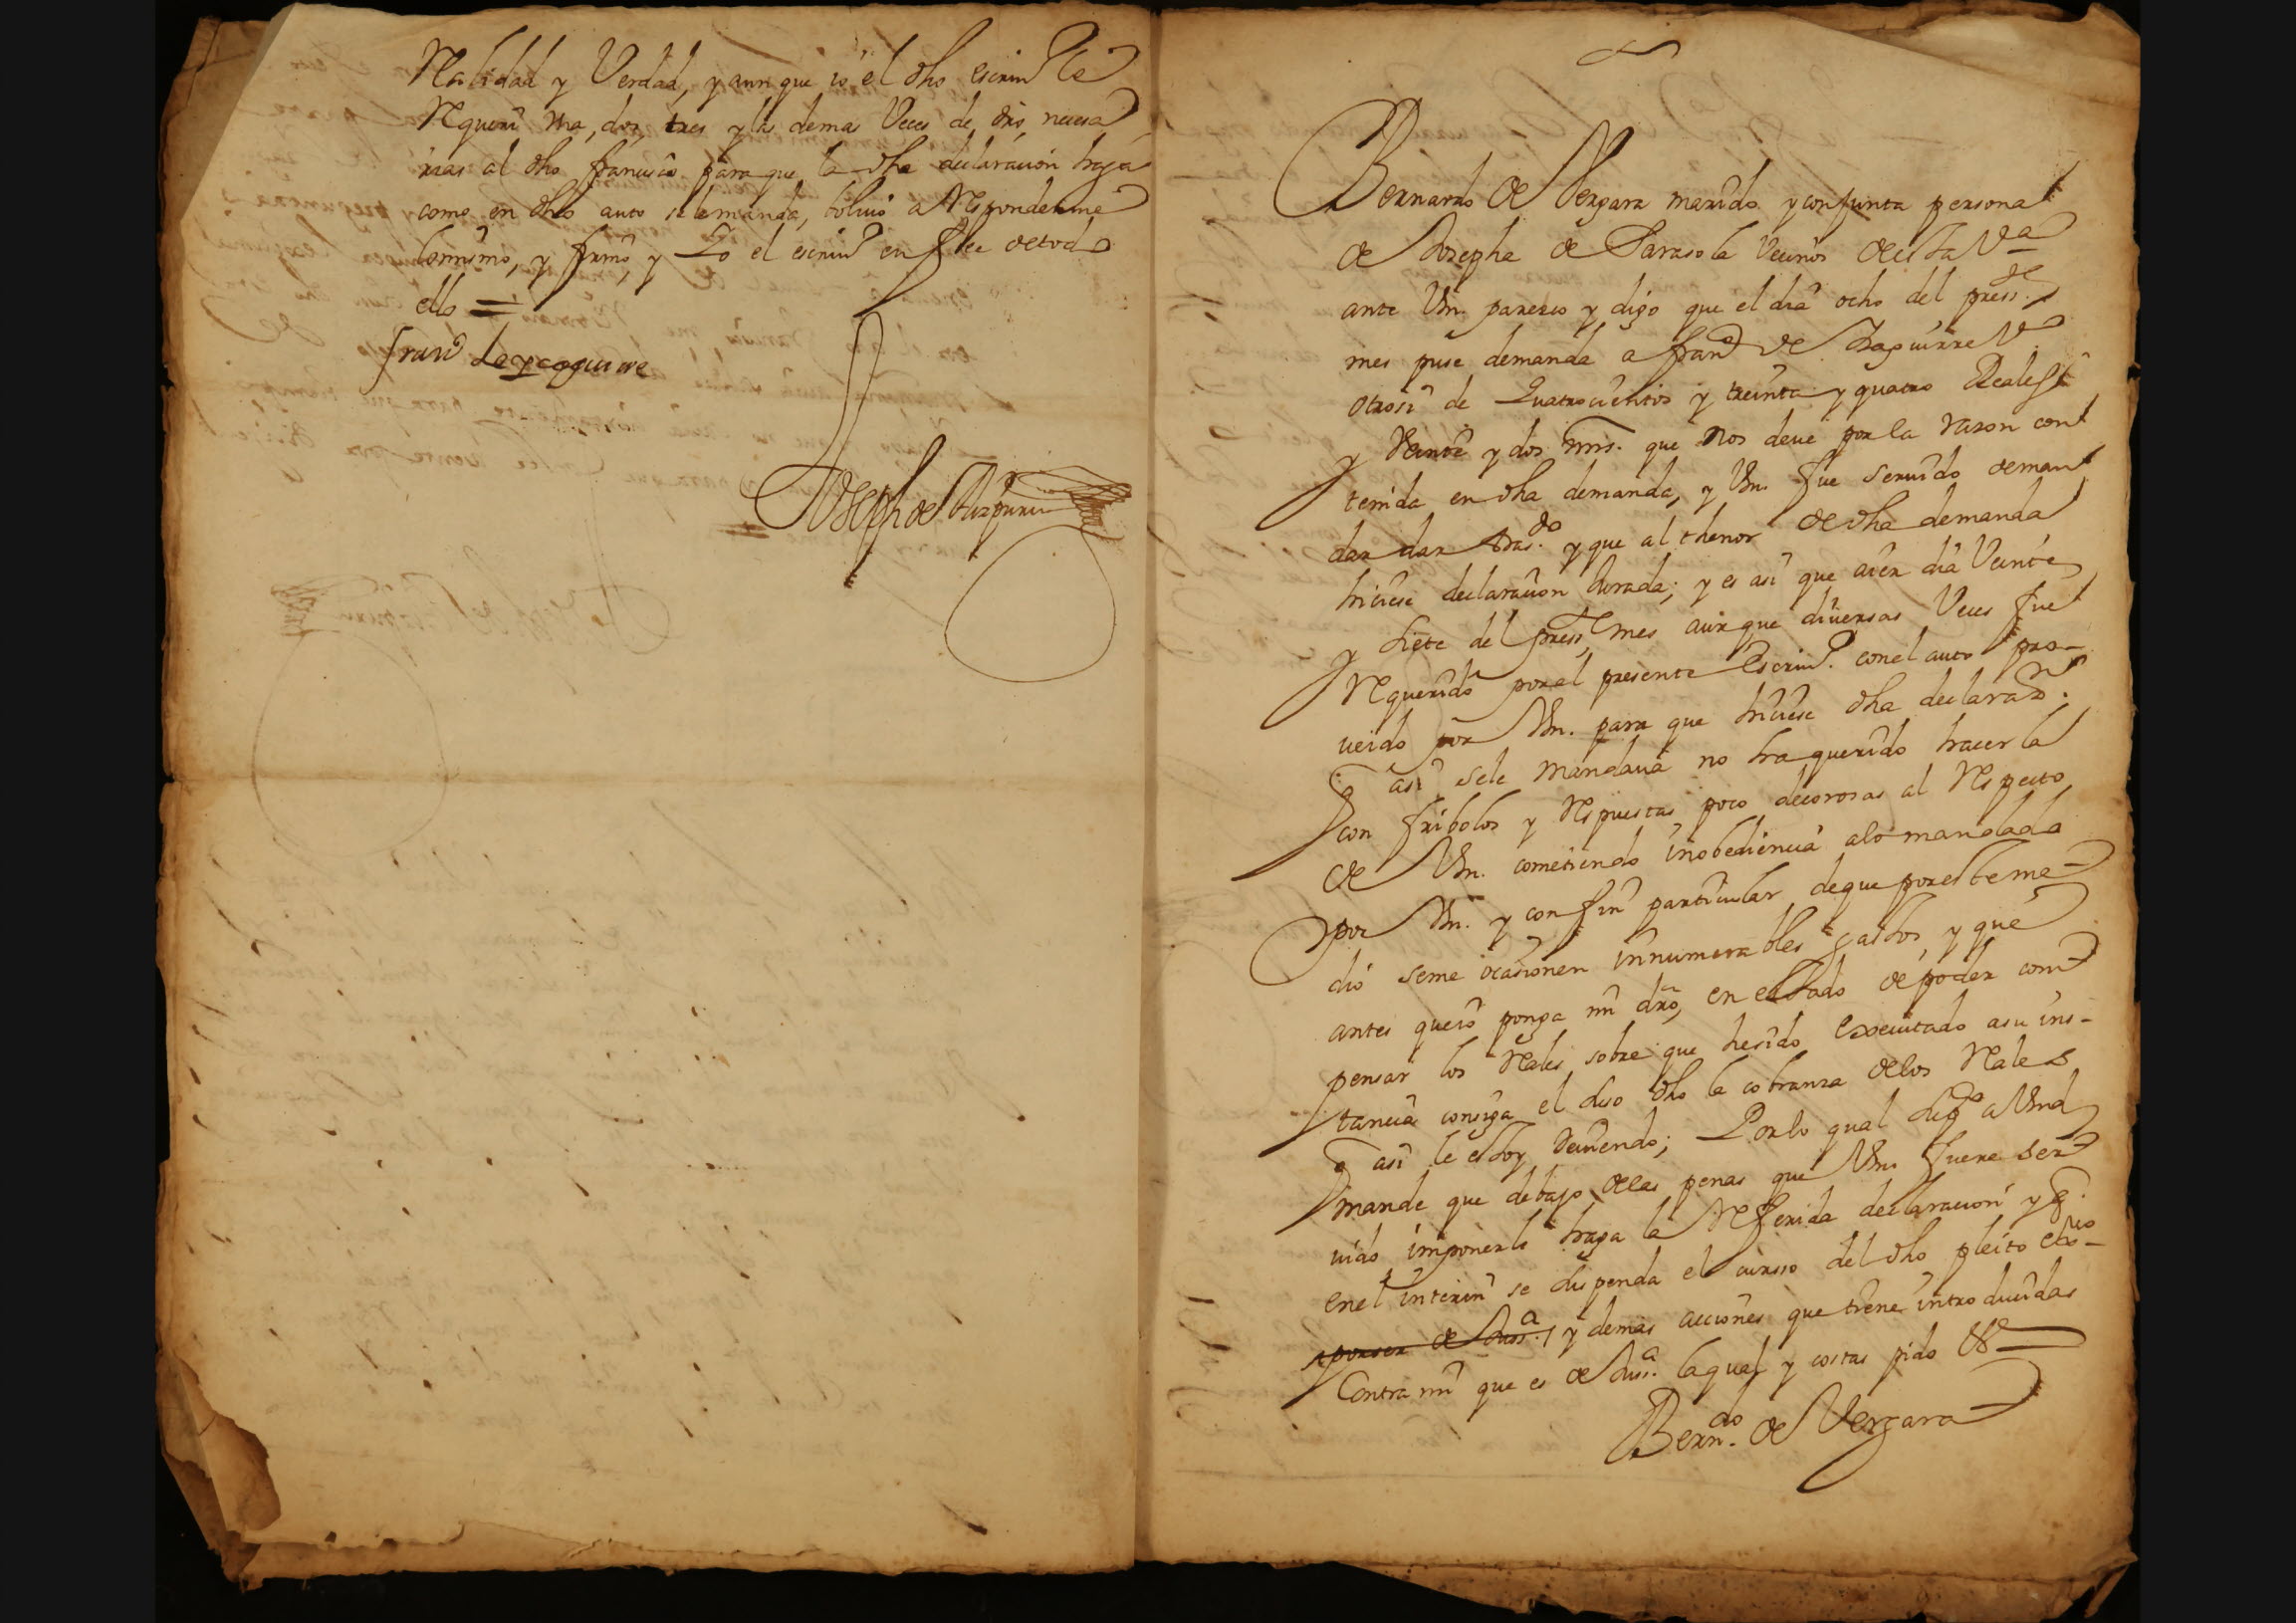 Realidad y Verdad, y aun que io el dho escriuº le
Requeri vna, dos, tres y las demas Veces de drō necesa
rias al dho franciscō para que la dha declaracion haga
como en dho auto se le manda, boluio a Responderme
lo mismo, y firmō, y Yo el escriuº en fee de todo
ello =
franᶜᵒ de yçaguirre
Joseph de
Bernardo de Vergara marido y conjunta persona
de Josepha de Sarasola Vecinos de esta Vª
ante Vm. parezco y digo que el dia ocho del pressᵗᵉ
mes puse demanda a franᶜᵒ de Izaguirre Vº
otrosi de Quatrocientos y treinta y quatro Reales
y Veinte y dos mrs. que nos deue por la razon con
tenida en dha demanda, y Vm. fue seruido de man
dar dar trasᵈᵒ. y que al thenor de dha demanda
hiciese declaracion Jurada; y es asi que aier dia Veinte
y siete del pressᵗᵉ mes aunque diuersas Veces fue
Requerido por el presente Escriuº. con el auto pro-
ueido por Vm. para que hiciese dha declaraºⁿ.
q̄ asi se le mandaua no ha querido hacer la
con fribolos y Respuestas poco decorosas al Respecto
de Vm. cometiendo inobediencia a lo mandado
por Vm. y con fin particular de que por este me
dio se me ocasionen innumerables gastos, y que
antes que io ponga mi drō, en estado de poder com
pensar los Reales sobre que he sido executado a su ins-
tancia consiga el suso dho la cobranza de los Reales
q̄ asi le estoy deuiendo; Por lo qual suppᶜᵒ a Vmd
mande que debajo de las penas que Vm. fuere ser
uido imponerle haga la Referida declaracion y q̄.
en el interin se suspenda el cursso del dho pleito
por ser de Jussª. y demas acciones que tiene introducidas
Contra mi que es de Jusª. la qual y costas pido &ª
Bernᵈᵒ. de Vergara